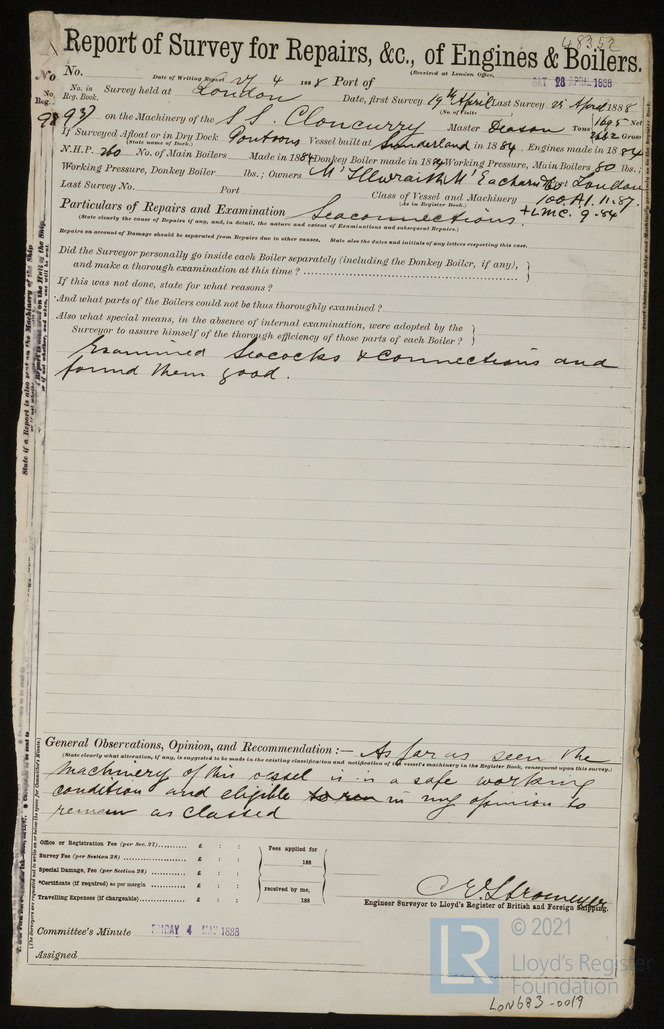 48352
Report of Survey for Repairs, &c., of Engines & Boilers.
No. Date of Writing Report 27 4 1888 Port of (Received at London Office, SAT 28 APRIL 1888
No. in Reg. Book. Survey held at London Date, first Survey 19th April Last Survey 25 April 1888
(No. of Visits)
937 on the Machinery of the S.S. Cloncurry Master Deason Tons 1695 Net 2682 Gross
If Surveyed Afloat or in Dry Dock Pontoons Vessel built at Sunderland in 1884. Engines made in 1884
(State name of Dock.)
N.H.P. 260 No. of Main Boilers Made in 1884 Donkey Boiler made in 1884 Working Pressure, Main Boilers 80 lbs.;
Working Pressure, Donkey Boiler lbs.; Owners McIllwraith McEacharn & Co Port London
Last Survey No. Port Class of Vessel and Machinery 100.A.1. 11.87.
(As in Register Book.) +LMC. 9.84
Particulars of Repairs and Examination Seaconnections.
(State clearly the cause of Repairs if any, and, in detail, the nature and extent of Examinations and subsequent Repairs.)
Repairs on account of Damage should be separated from Repairs due to other causes. State also the dates and initials of any letters respecting this case.
Did the Surveyor personally go inside each Boiler separately (including the Donkey Boiler, if any),
and make a thorough examination at this time?
If this was not done, state for what reasons?
And what parts of the Boilers could not be thus thoroughly examined?
Also what special means, in the absence of internal examination, were adopted by the
Surveyor to assure himself of the thorough efficiency of those parts of each Boiler?
Examined Seacocks & connections and
found them good.
General Observations, Opinion, and Recommendation:— As far as seen the
(State clearly what alteration, if any, is suggested to be made in the existing classification and notification of the vessel's machinery in the Register Book, consequent upon this survey.)
machinery of this vessel is in a safe working
condition and eligible to run in my opinion to
remain as classed
Office or Registration Fee (per Sec. 27) £ : :
Survey Fee (per Section 28) £ : :
Special Damage, Fee (per Section 28) £ : :
*Certificate (if required) as per margin £ : :
Travelling Expenses (if chargeable) £ : :
Fees applied for
188
received by me,
188
C. E. Stromeyer
Engineer Surveyor to Lloyd's Register of British and Foreign Shipping.
Committee's Minute FRIDAY 4 MAY 1888
Assigned
LR
© 2021
Lloyd's Register
Foundation
LON683-0019